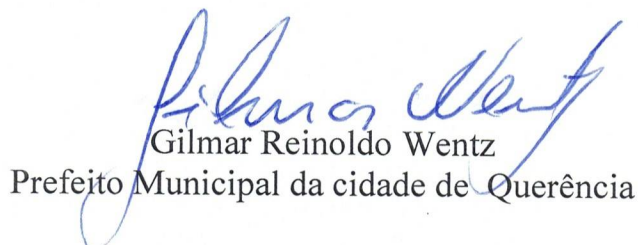 Gilmar Wentz
Gilmar Reinoldo Wentz
Prefeito Municipal da cidade de Querência